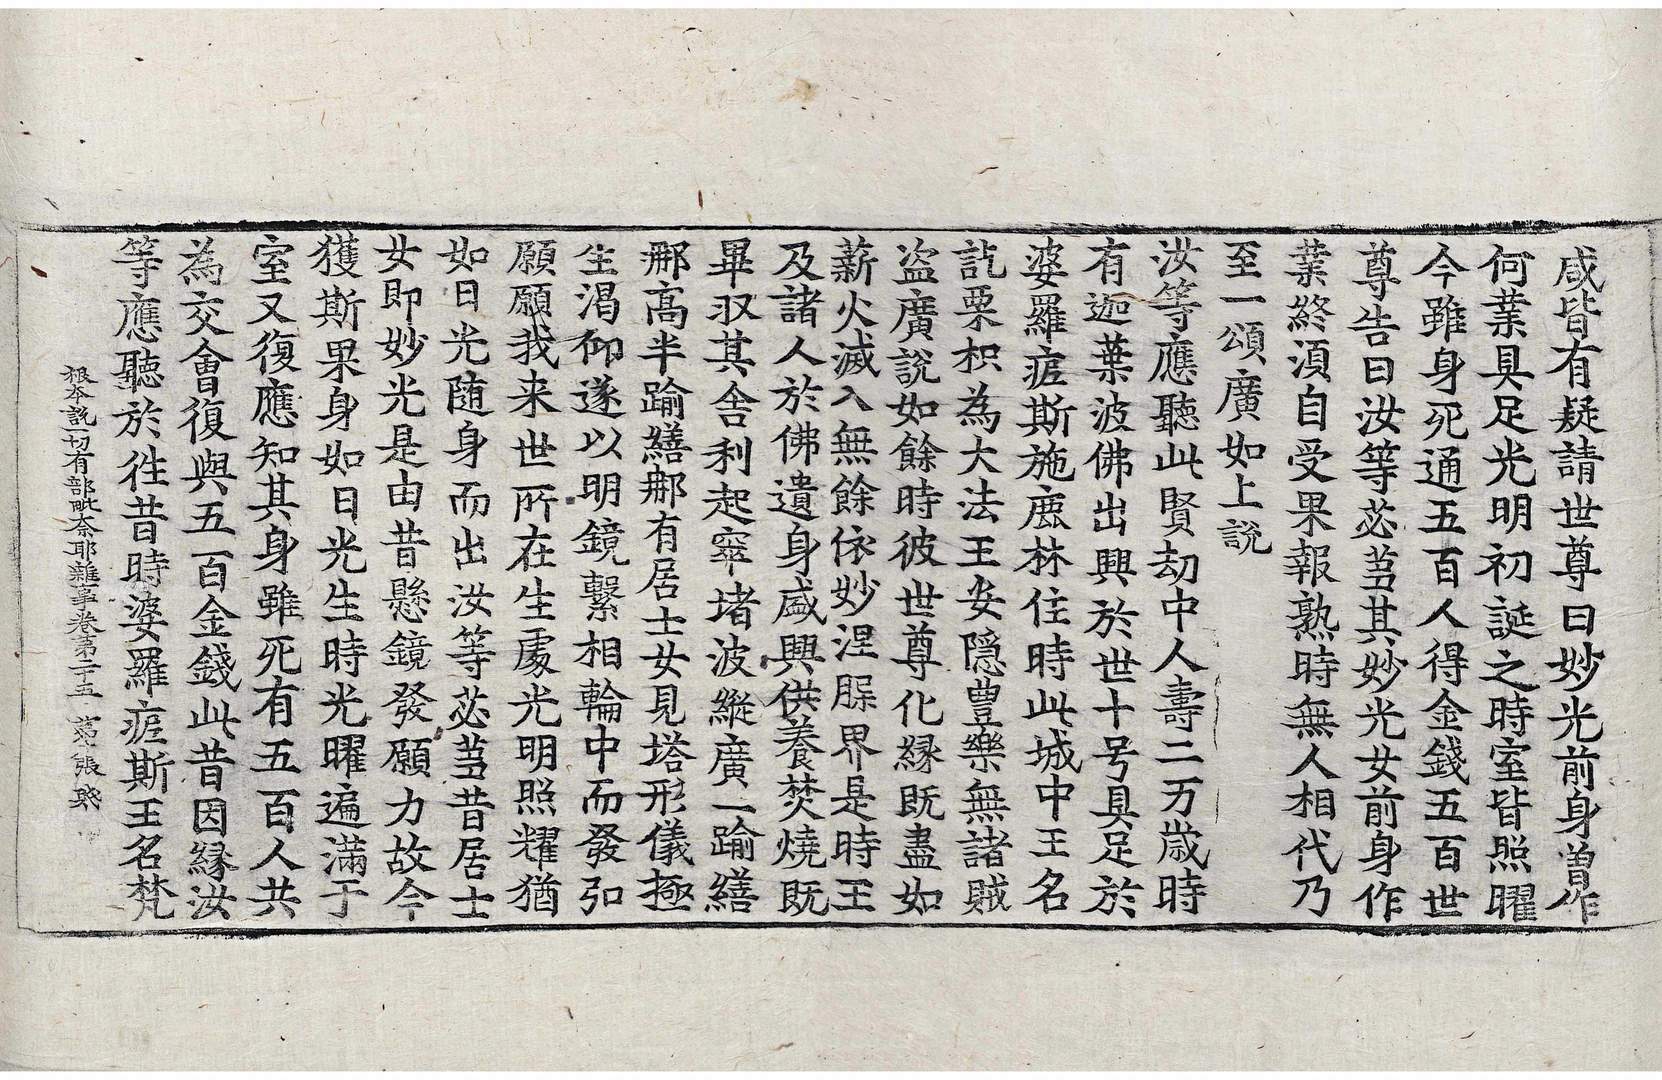 咸皆有疑請世尊曰妙光前身曽作
何業具足光明初誕之時室皆照曜
今雖身死通五百人得金錢五百世
尊告曰汝等苾芻其妙光女前身作
業終湏自受果報熟時無人相代乃
至一頌廣如上說
汝等應聽此賢劫中人壽二万歲時
有迦葉波佛出興於世十号具足於
婆羅痆斯施鹿林住時此城中王名
訖栗枳為大法王安隱豊樂無諸賊
盜廣說如餘時彼世尊化縁既盡如
薪火滅入無餘依妙涅槃界是時王
及諸人於佛遺身盛興供養焚燒既
畢収其舎利起窣堵波縱廣一踰繕
那髙半踰繕那有居士女見塔形儀極
生渇仰遂以明鏡繋相輪中而發弘
願願我来世所在生處光明照耀猶
如日光随身而出汝等苾芻昔居士
女即妙光是由昔懸鏡發願力故今
獲斯果身如日光生時光曜遍滿于
室又復應知其身雖死有五百人共
為交會復與五百金錢此昔因縁汝
等應聽於往昔時婆羅痆斯王名梵
根本説一切有部毗奈耶雜事卷第二十五 第 張